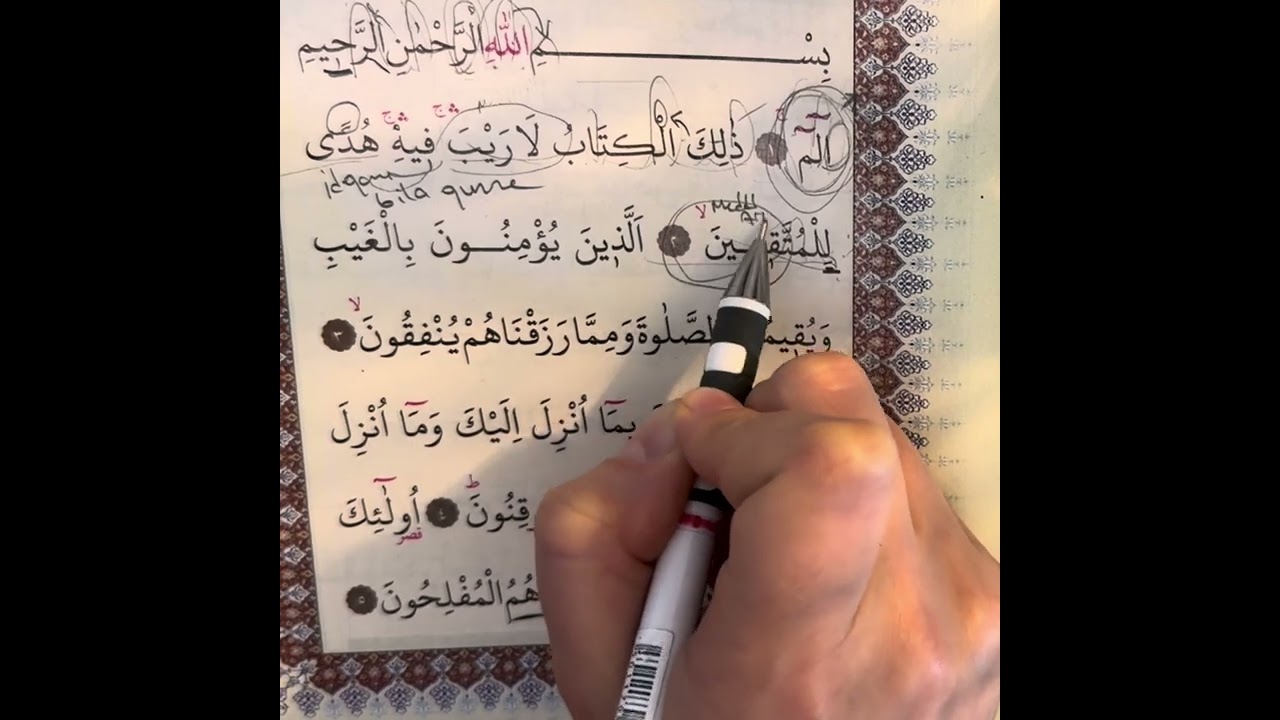 بِسْــــــمِ اللّٰهِ الْرَّحْمٰنِ الْرَّحِيمِ
الٓمٓ ۚ ﴿١﴾ ذٰلِكَ الْكِتَابُ لَا رَيْبَ ۛۚ فِيهِ ۛۚ هُدًى
idgam bila gunne
Medd
لِلْمُتَّقِينَ ۙ ﴿٢﴾ اَلَّذِينَ يُؤْمِنُونَ بِالْغَيْبِ
وَيُقِيمُ الصَّلٰوةَ وَمِمَّا رَزَقْنَاهُمْ يُنْفِقُونَ ۙ ﴿٣﴾
بِمَٓا اُنْزِلَ اِلَيْكَ وَمَٓا اُنْزِلَ
قِنُونَ ۜ ﴿٤﴾ اُولٰٓئِكَ
قصر
هُمُ الْمُفْلِحُونَ ﴿٥﴾